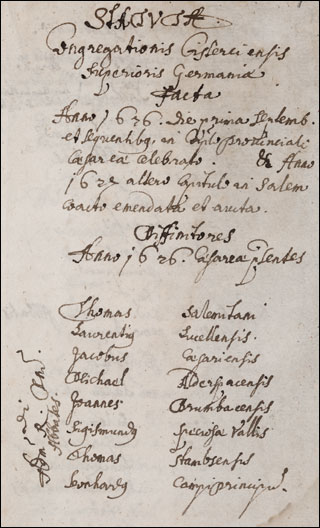 STATUTA
Congregationis Cisterciensis
Superioris Germaniæ
Facta
Anno 1626. die prima Septemb.
et sequentibq, in Caplo provinciali
Cæsareæ Celebrato. & Anno
1627 altero Capitulo in Salem
coacto emendata et aucta.
Diffinitores
Anno 1626. Cæsareæ pñtes
Thomas Salemitani
Laurentiq Lucellensis.
Jacobus Cæsariensis
Michael Alderspacensis
Joannes Brumbacensis
Sigismundq preciosæ Vallis
Thomas Stambsensis
Leonhardq Campi principum.
Abbates.